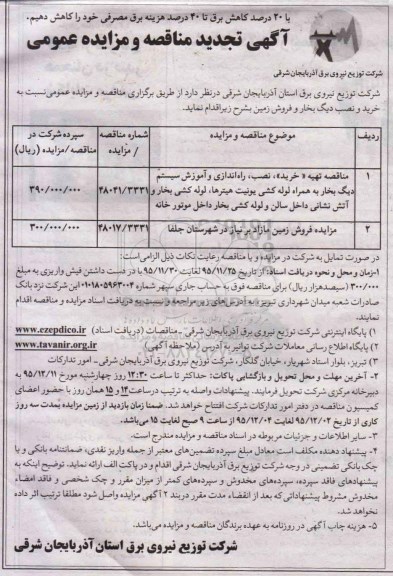 با ۲۰ درصد کاهش برق تا ۴۰ درصد هزینه برق مصرفی خود را کاهش دهیم.
آگهی تجدید مناقصه و مزایده عمومی
شرکت توزیع نیروی برق آذربایجان شرقی
شرکت توزیع نیروی برق استان آذربایجان شرقی درنظر دارد از طریق برگزاری مناقصه و مزایده عمومی نسبت به
خرید و نصب دیگ بخار و فروش زمین بشرح زیر اقدام نماید.
ردیف
موضوع مناقصه و مزایده
شماره مناقصه / مزایده
سپرده شرکت در مناقصه/مزایده (ریال)
۱
مناقصه تهیه « خرید»، نصب، راه‌اندازی و آموزش سیستم
دیگ بخار به همراه لوله کشی یونیت هیترها، لوله کشی بخار و
آتش نشانی داخل سالن و لوله کشی بخار داخل موتور خانه
۴۸۰۴۱/۳۳۳۱
۳۹۰/۰۰۰/۰۰۰
۲
مزایده فروش زمین مازاد بر نیاز در شهرستان جلفا
۴۸۰۱۷/۳۳۳۱
۳۰۰/۰۰۰/۰۰۰
در صورت تمایل به شرکت در مزایده و یا مناقصه رعایت نکات ذیل الزامی است:
۱-زمان و محل و نحوه دریافت اسناد: از تاریخ ۹۵/۱۱/۲۵ لغایت ۹۵/۱۱/۳۰ با در دست داشتن فیش واریزی به مبلغ
۳۰۰/۰۰۰ (سیصدهزار ریال) برای مناقصه فوق به حساب جاری سپهر شماره ۰۱۰۱۸۰۵۹۶۳۰۰۴ این شرکت نزد بانک
صادرات شعبه میدان شهرداری تبریز به آدرس‌های زیر مراجعه و نسبت به دریافت اسناد مزایده و مناقصه اقدام
نمایند.
۱) پایگاه اینترنتی شرکت توزیع نیروی برق آذربایجان شرقی - مناقصات (دریافت اسناد) www.ezepdico.ir
۲) پایگاه اطلاع رسانی معاملات شرکت توانیر به آدرس (ملاحظه آگهی) www.tavanir.org.ir
۳) تبریز، بلوار استاد شهریار، خیابان گلکار، شرکت توزیع نیروی برق آذربایجان شرقی - امور تدارکات
۲- آخرین مهلت و محل تحویل و بازگشایی پاکات: حداکثر تا ساعت ۱۲:۳۰ روز چهارشنبه مورخ ۹۵/۱۲/۱۱ به
دبیرخانه مرکزی شرکت تحویل فرمایند. پیشنهادات واصله به ترتیب در ساعت ۱۴ و ۱۵ همان روز با حضور اعضای
کمیسیون مناقصه در دفتر امور تدارکات شرکت افتتاح خواهد شد. ضمنا زمان بازدید از زمین مزایده بمدت سه روز
کاری از تاریخ ۹۵/۱۲/۰۲ لغایت ۹۵/۱۲/۰۴ از ساعت ۹ صبح لغایت ۱۵ می‌باشد.
۳- سایر اطلاعات و جزئیات مربوطه در اسناد مناقصه و مزایده مندرج است.
۴- پیشنهاد دهنده مکلف است معادل مبلغ سپرده تضمین‌های معتبر از جمله واریز نقدی، ضمانتنامه بانکی و یا
چک بانکی تضمینی در وجه شرکت توزیع برق آذربایجان شرقی اقدام و در پاکت الف ارائه نماید. توضیح اینکه به
پیشنهادهای فاقد سپرده، سپرده‌های مخدوش و سپرده‌های کمتر از میزان مقرر و چک شخصی و فاقد امضاء،
مخدوش مشروط پیشنهاداتی که بعد از انقضاء مدت مقرر در بند ۲ آگهی مزایده واصل شود مطلقا ترتیب اثر داده
نخواهد شد.
۵- هزینه چاپ آگهی در روزنامه به عهده برندگان مناقصه و مزایده می‌باشد.
شرکت توزیع نیروی برق استان آذربایجان شرقی